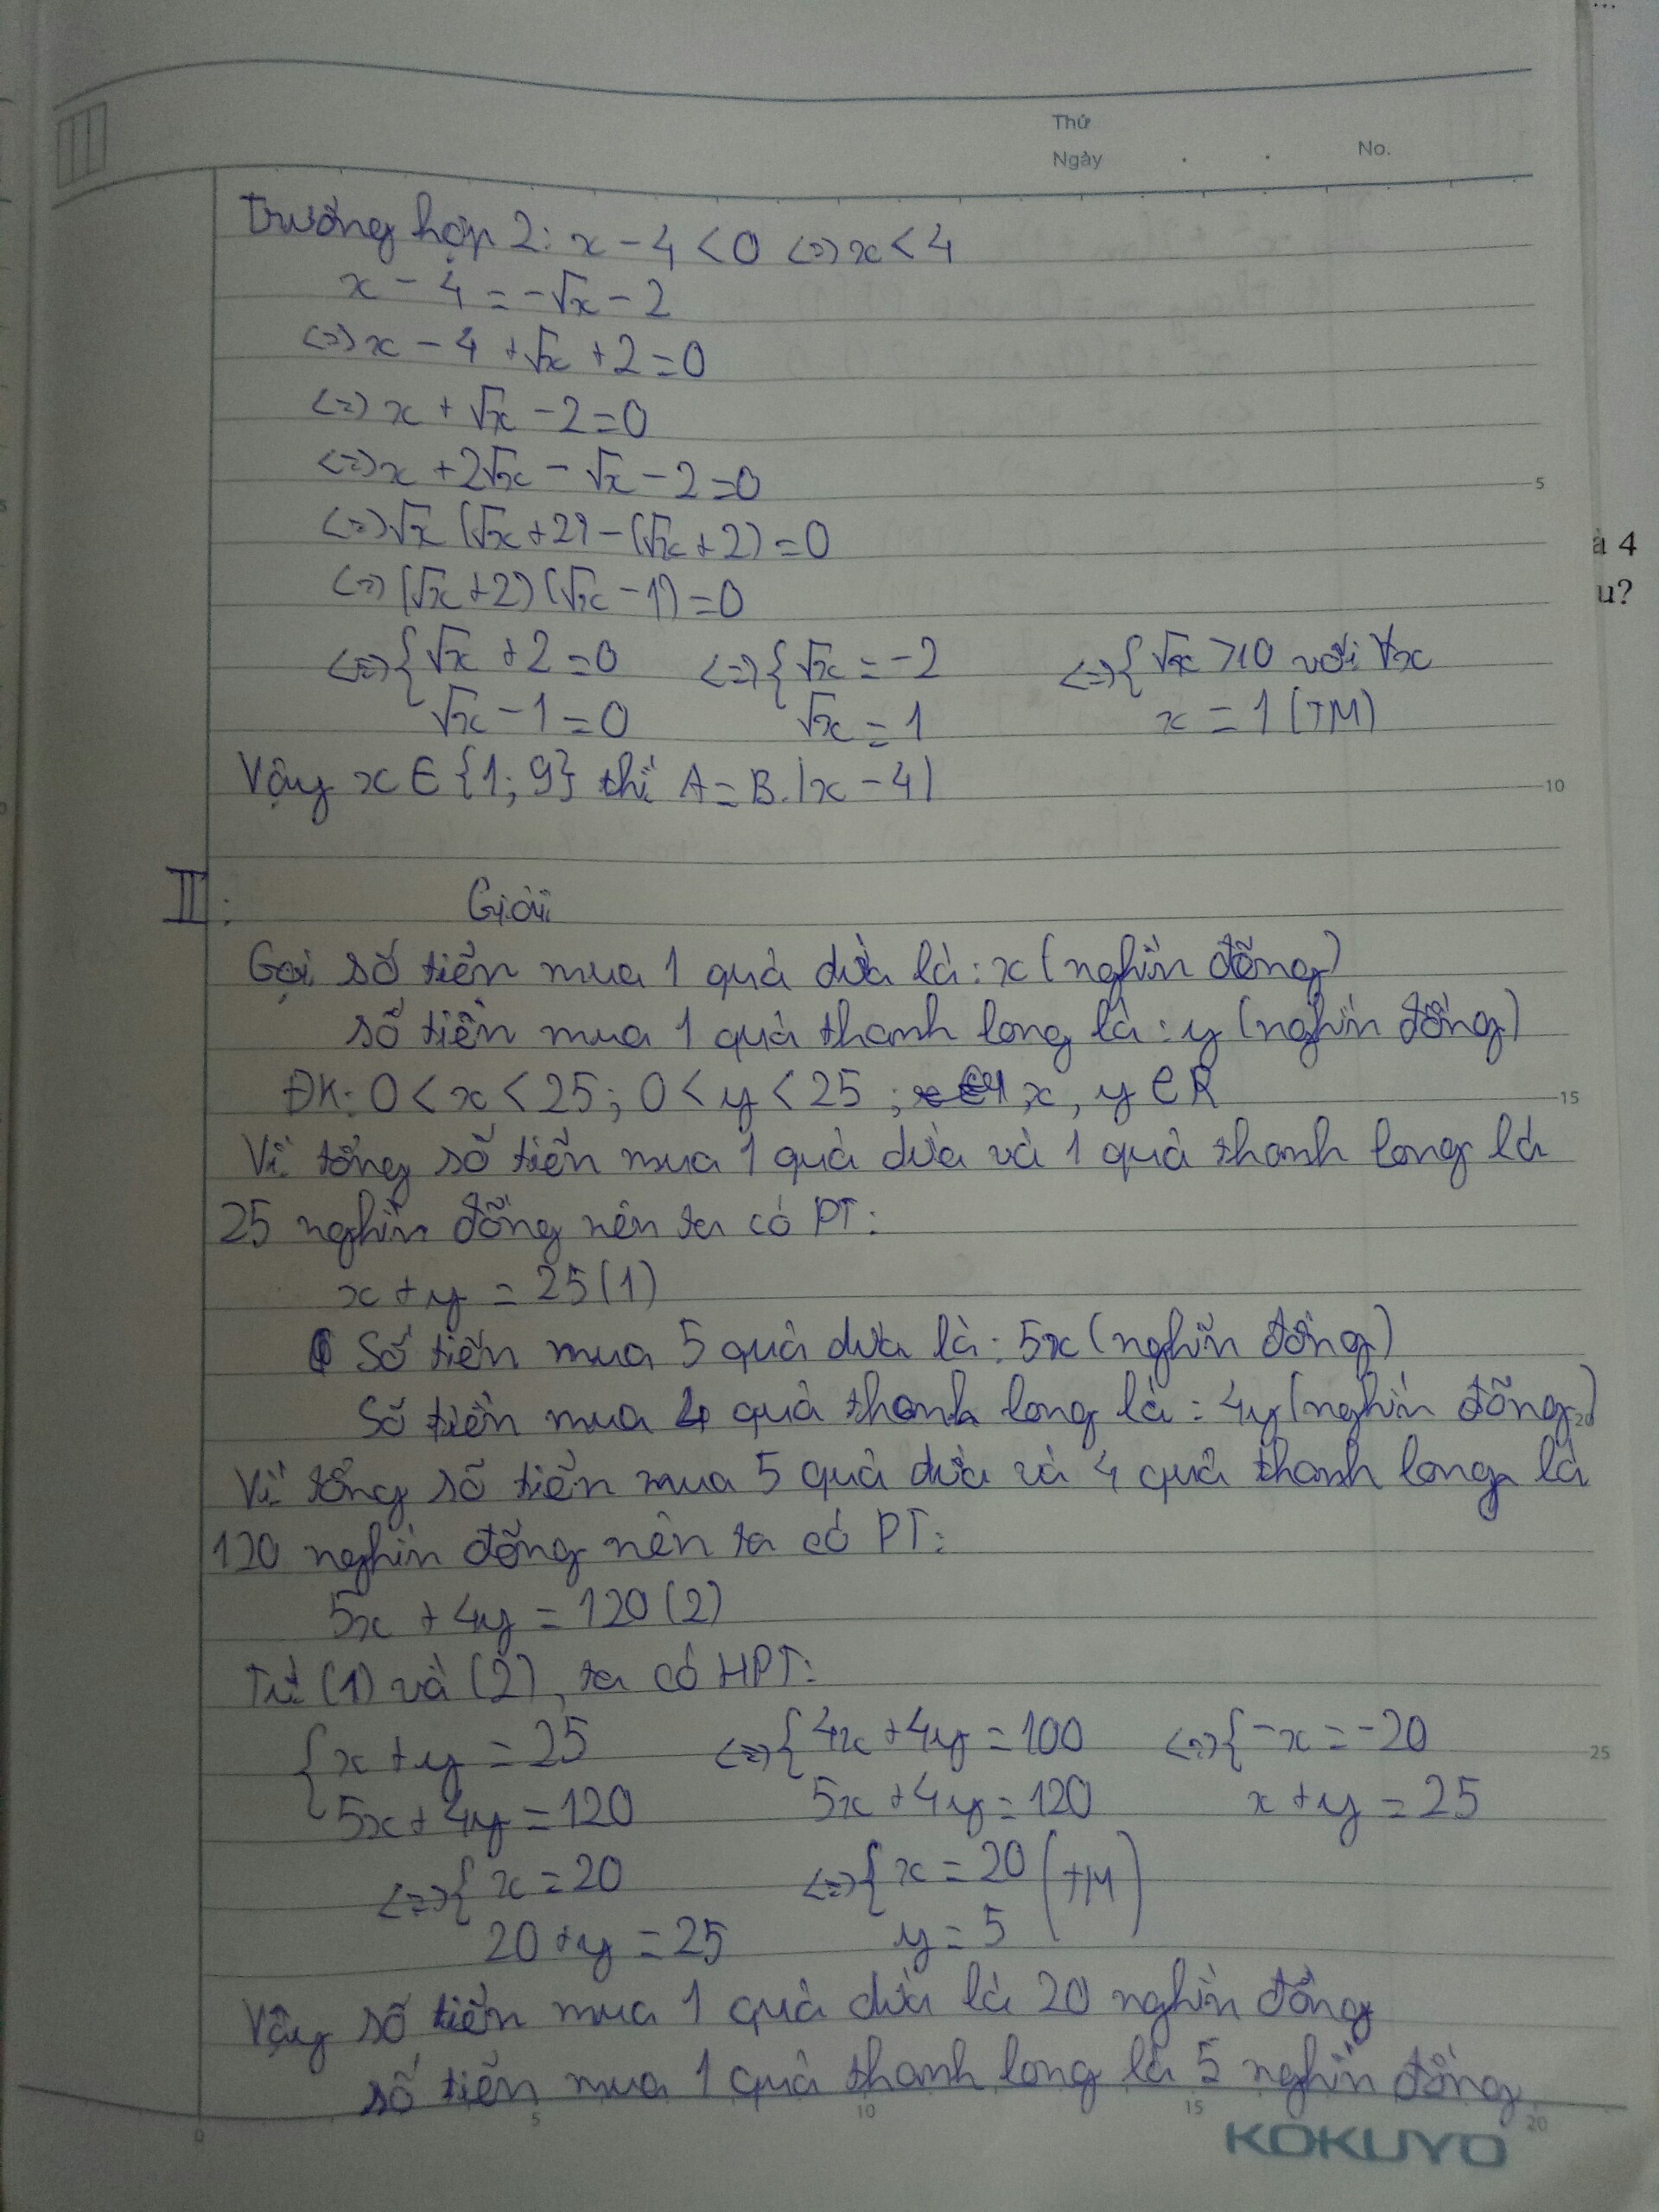 ...
Thứ
Ngày . . No.
Trường hợp 2: x - 4 < 0 <=> x < 4
x - 4 = -√x - 2
<=> x - 4 + √x + 2 = 0
<=> x + √x - 2 = 0
<=> x + 2√x - √x - 2 = 0
5
<=> √x (√x + 2) - (√x + 2) = 0
à 4
<=> (√x + 2) (√x - 1) = 0
u?
<=> { √x + 2 = 0 <=> { √x = -2 <=> { √x ≥ 0 với ∀x
√x - 1 = 0 √x = 1 x = 1 (TM)
Vậy x ∈ {1; 9} thì A = B.|x - 4|
10
II: Giải
Gọi số tiền mua 1 quả dừa là: x (nghìn đồng)
số tiền mua 1 quả thanh long là: y (nghìn đồng)
ĐK: 0 < x < 25; 0 < y < 25 ; x, y ∈ R
15
Vì tổng số tiền mua 1 quả dừa và 1 quả thanh long là
25 nghìn đồng nên ta có PT:
x + y = 25 (1)
Số tiền mua 5 quả dừa là: 5x (nghìn đồng)
Số tiền mua 4 quả thanh long là: 4y (nghìn đồng)
20
Vì tổng số tiền mua 5 quả dừa và 4 quả thanh long là
120 nghìn đồng nên ta có PT:
5x + 4y = 120 (2)
Từ (1) và (2), ta có HPT:
{ x + y = 25 <=> { 4x + 4y = 100 <=> { -x = -20
25
5x + 4y = 120 5x + 4y = 120 x + y = 25
<=> { x = 20 <=> { x = 20 (TM)
20 + y = 25 y = 5
Vậy số tiền mua 1 quả dừa là 20 nghìn đồng
số tiền mua 1 quả thanh long là 5 nghìn đồng
0 5 10 15 20
KOKUYO